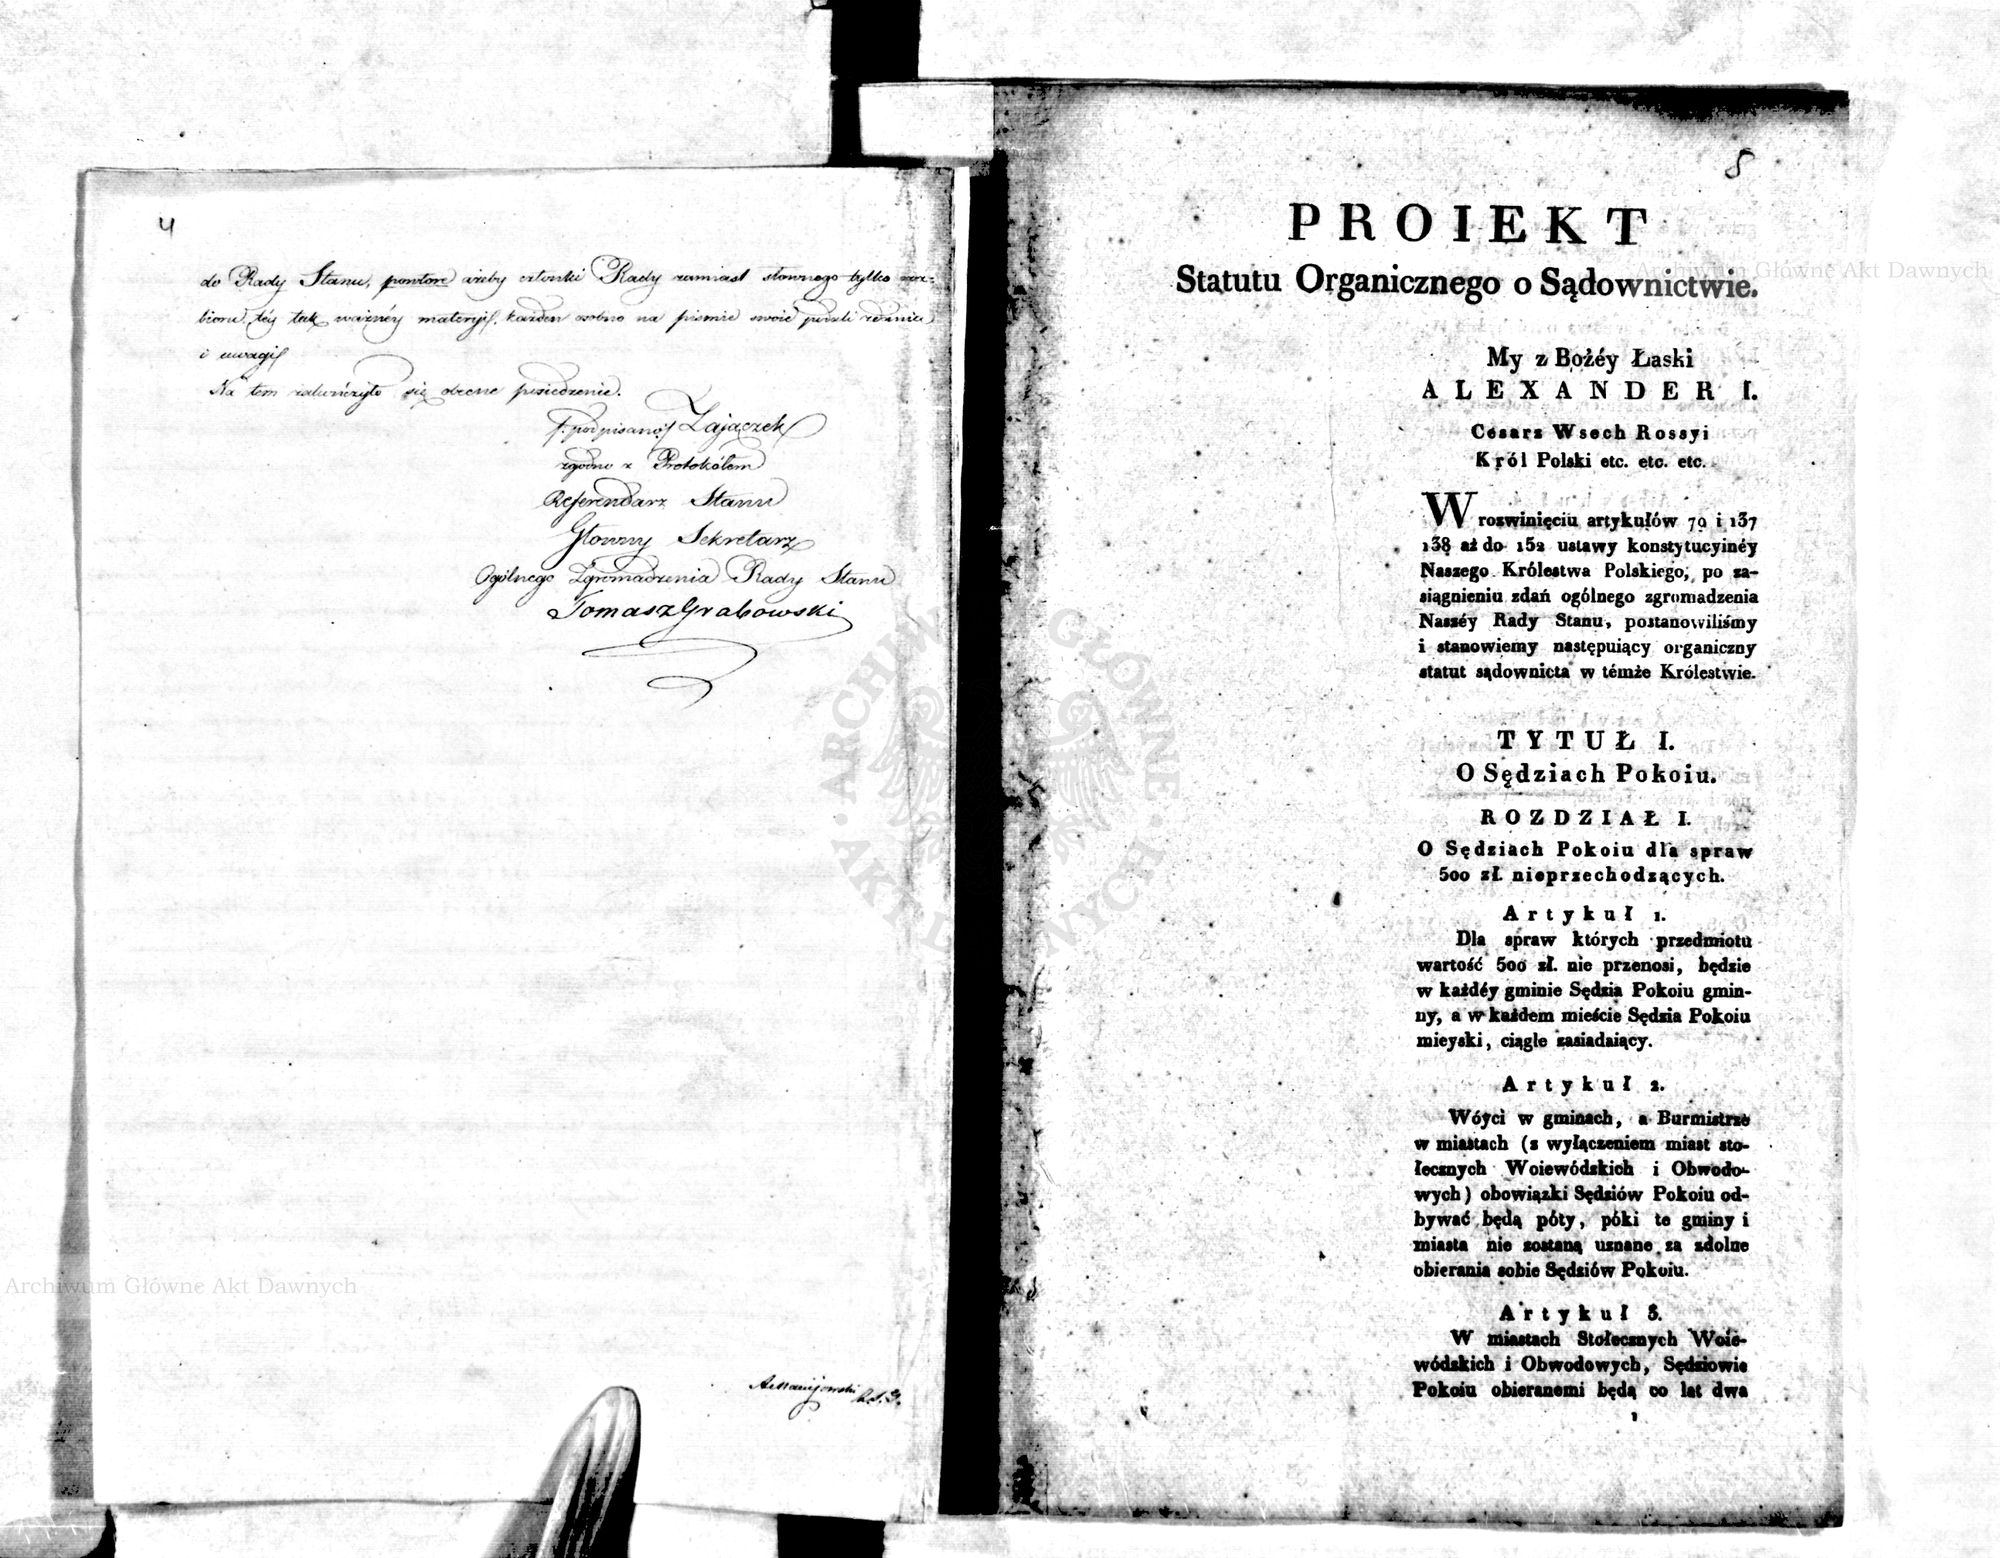 4
do Rady Stanu, powtore ażeby członki Rady zamiast słownego tylko
téy tak ważnéy materyi, każden osobno na piśmie swoie
i uwagi
Na tem zakończyło się obecne posiedzenie.
podpisano Zajączek
zgodno z Protokółem
Referendarz Stanu
Główny Sekretarz
Ogólnego Zgromadzenia Rady Stanu
Tomasz Grabowski
Archiwum Główne Akt Dawnych
ARCHIWUM GŁÓWNE
AKT DAWNYCH
PROIEKT
Statutu Organicznego o Sądownictwie.
Archiwum Główne Akt Dawnych
My z Bożéy Łaski
ALEXANDER I.
Cesarz Wsech Rossyi
Król Polski etc. etc. etc.
W rozwinięciu artykułów 70 i 137
138 aż do 152 ustawy konstytucyinéy
Naszego Królestwa Polskiego, po za-
siągnieniu zdań ogólnego zgromadzenia
Naszéy Rady Stanu, postanowiliśmy
i stanowiemy następuiący organiczny
statut sądownicta w témże Królestwie.
TYTUŁ I.
O Sędziach Pokoiu.
ROZDZIAŁ I.
O Sędziach Pokoiu dla spraw
500 zł. nieprzechodzących.
Artykuł 1.
Dla spraw których przedmiotu
wartość 500 zł. nie przenosi, będzie
w każdéy gminie Sędzia Pokoiu gmin-
ny, a w każdem mieście Sędzia Pokoiu
mieyski, ciągle zasiadaiący.
Artykuł 2.
Wóyci w gminach, a Burmistrze
w miastach (z wyłączeniem miast sto-
łecznych Woiewódzkich i Obwodo-
wych) obowiązki Sędziów Pokoiu od-
bywać będą póty, póki te gminy i
miasta nie zostaną uznane za zdolne
obierania sobie Sędziów Pokoiu.
Artykuł 3.
W miastach Stołecznych Woie-
wódzkich i Obwodowych, Sędziowie
Pokoiu obieranemi będą co lat dwa
1